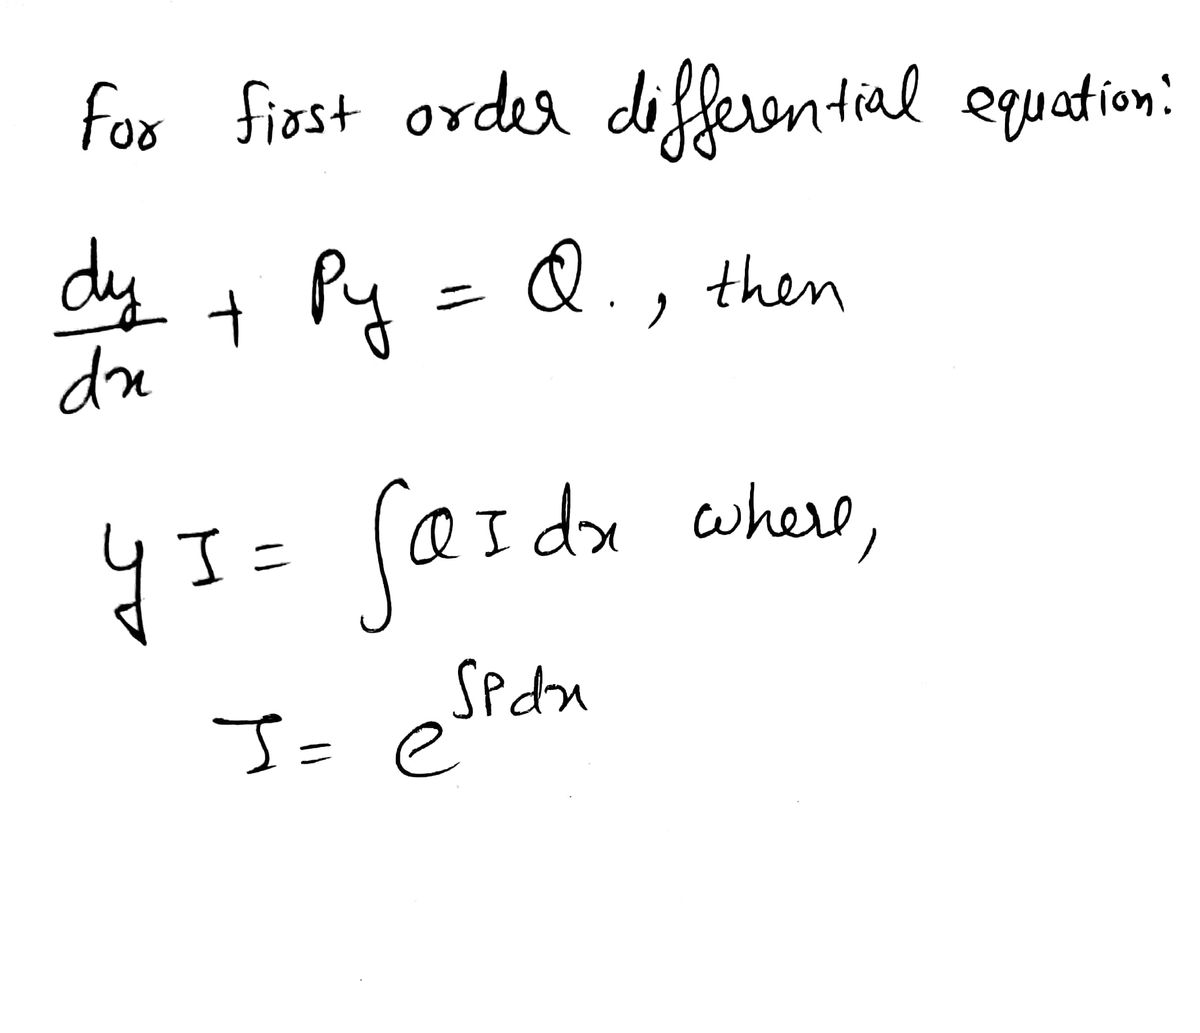 For first order differential equation:
dy/dx + Py = Q., then
yI = ∫QI dx where,
I = e^∫Pdx